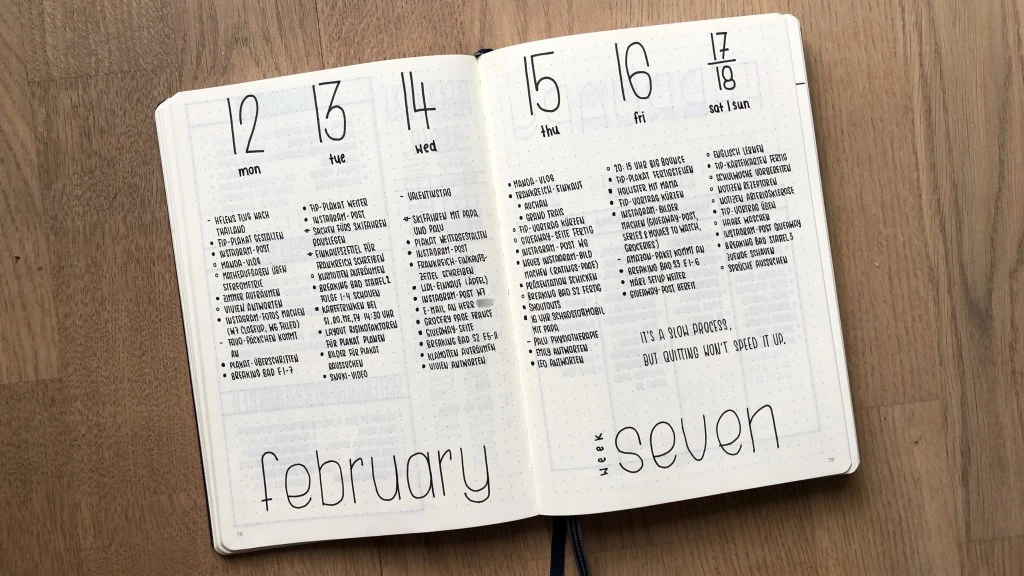 12
mon
- HELENS FLUG NACH
THAILAND
• TIP-PLAKAT GESTALTEN
• INSTAGRAM-POST
• MANGA-VLOG
○ MATHEAUFGABEN ÜBEN
STEREOMETRIE
• ZIMMER AUFRÄUMEN
○ VIVIEN ANTWORTEN
• INSTAGRAM-FOTOS MACHEN
(W7 CLOSEUP, W6 FILLED)
KOMMT
AN
• PLAKAT-ÜBERSCHRIFTEN
• BREAKING BAD F1-7
13
tue
• TIP-PLAKAT WEITER
• INSTAGRAM-POST
SACHEN FÜRS SKIFAHREN
RAUSLEGEN
EINKAUFSZETTEL FÜR
FRANKREICH SCHREIBEN
• KLAMOTTEN AUFRÄUMEN
• BREAKING BAD STAFFEL 2
FOLGE 1-4 SCHAUEN
• KAFFEETRINKEN BEI
14:30 UHR
• LAYOUT RISIKOFAKTOREN
FÜR PLAKAT PLANEN
• BILDER FÜR PLAKAT
RAUSSUCHEN
• VIDEO
14
wed
- VALENTINSTAG
SKIFAHREN MIT PAPA
UND PAUL
• PLAKAT WEITERGESTALTEN
• INSTAGRAM-POST
• FRANKREICH-EINKAUFS-
ZETTEL SCHREIBEN
• LIDL-EINKAUF (ÄPFEL)
• INSTAGRAM-POST W7
• E-MAIL AN HERR
• GROCERY PAGE FRANCE
• GIVEAWAY-SEITE
• BREAKING BAD S2 F5-11
• KLAMOTTEN AUFRÄUMEN
• VIVIEN ANTWORTEN
15
thu
• MANGA-VLOG
• FRANKREICH-EINKAUF
• AUCHAN
• GRAND FRAIS
○ TIP-VORTRAG KÜRZEN
○ GIVEAWAY-SEITE FERTIG
• INSTAGRAM-POST W6
• NEUES INSTAGRAM-BILD
MACHEN (RATINGS-PAGE)
• PRÄSENTATION SCHICKEN
• BREAKING BAD S2 FERTIG
○ SHOUTOUTS
• 8 UHR SCHADSTOFFMOBIL
MIT PAPA
- PAUL PHYSIOTHERAPIE
• EMILY ANTWORTEN
• LEO ANTWORTEN
16
fri
○ 20:15 UHR BIG BOUNCE
• TIP-PLAKAT FERTIGSTELLEN
• HOLLISTER MIT MAMA
• TIP-VORTRAG KÜRZEN
• INSTAGRAM-BILDER
MACHEN (GIVEAWAY-POST,
SERIES & MOVIES TO WATCH,
GROCERIES)
- AMAZON-PAKET KOMMT AN
• BREAKING BAD S3 F1-6
• MÄRZ SETUP WEITER
• GIVEAWAY-POST BEREIT
17
18
sat | sun
○ ENGLISCH LERNEN
• TIP-KARTEIKARTEN FERTIG
• SCHULWOCHE VORBEREITEN
○ NOTIZEN REZEPTOREN
○ NOTIZEN ARTERIOSKLEROSE
○ TIP-VORTRAG ÜBEN
○ HAARE WASCHEN
• INSTAGRAM-POST GIVEAWAY
• BREAKING BAD STAFFEL 3
ZUENDE SCHAUEN
○ SPRÜCHE AUSSUCHEN
IT'S A SLOW PROCESS,
BUT QUITTING WON'T SPEED IT UP.
february
week
seven
78
79